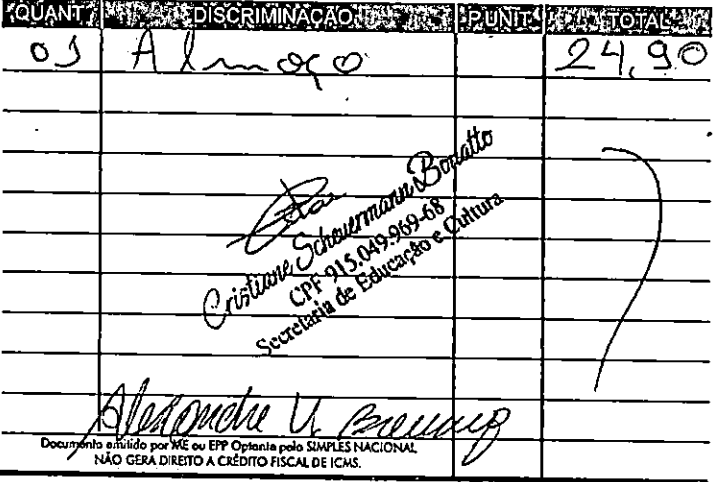 QUANT. DISCRIMINAÇÃO P.UNIT. TOTAL
01 Almoço 24,90
Cristiane Scheuermann Bonatto
CPF 915.049.969-68
Secretaria de Educação e Cultura
Alexandre V.
Documento emitido por ME ou EPP Optante pelo SIMPLES NACIONAL
NÃO GERA DIREITO A CRÉDITO FISCAL DE ICMS.